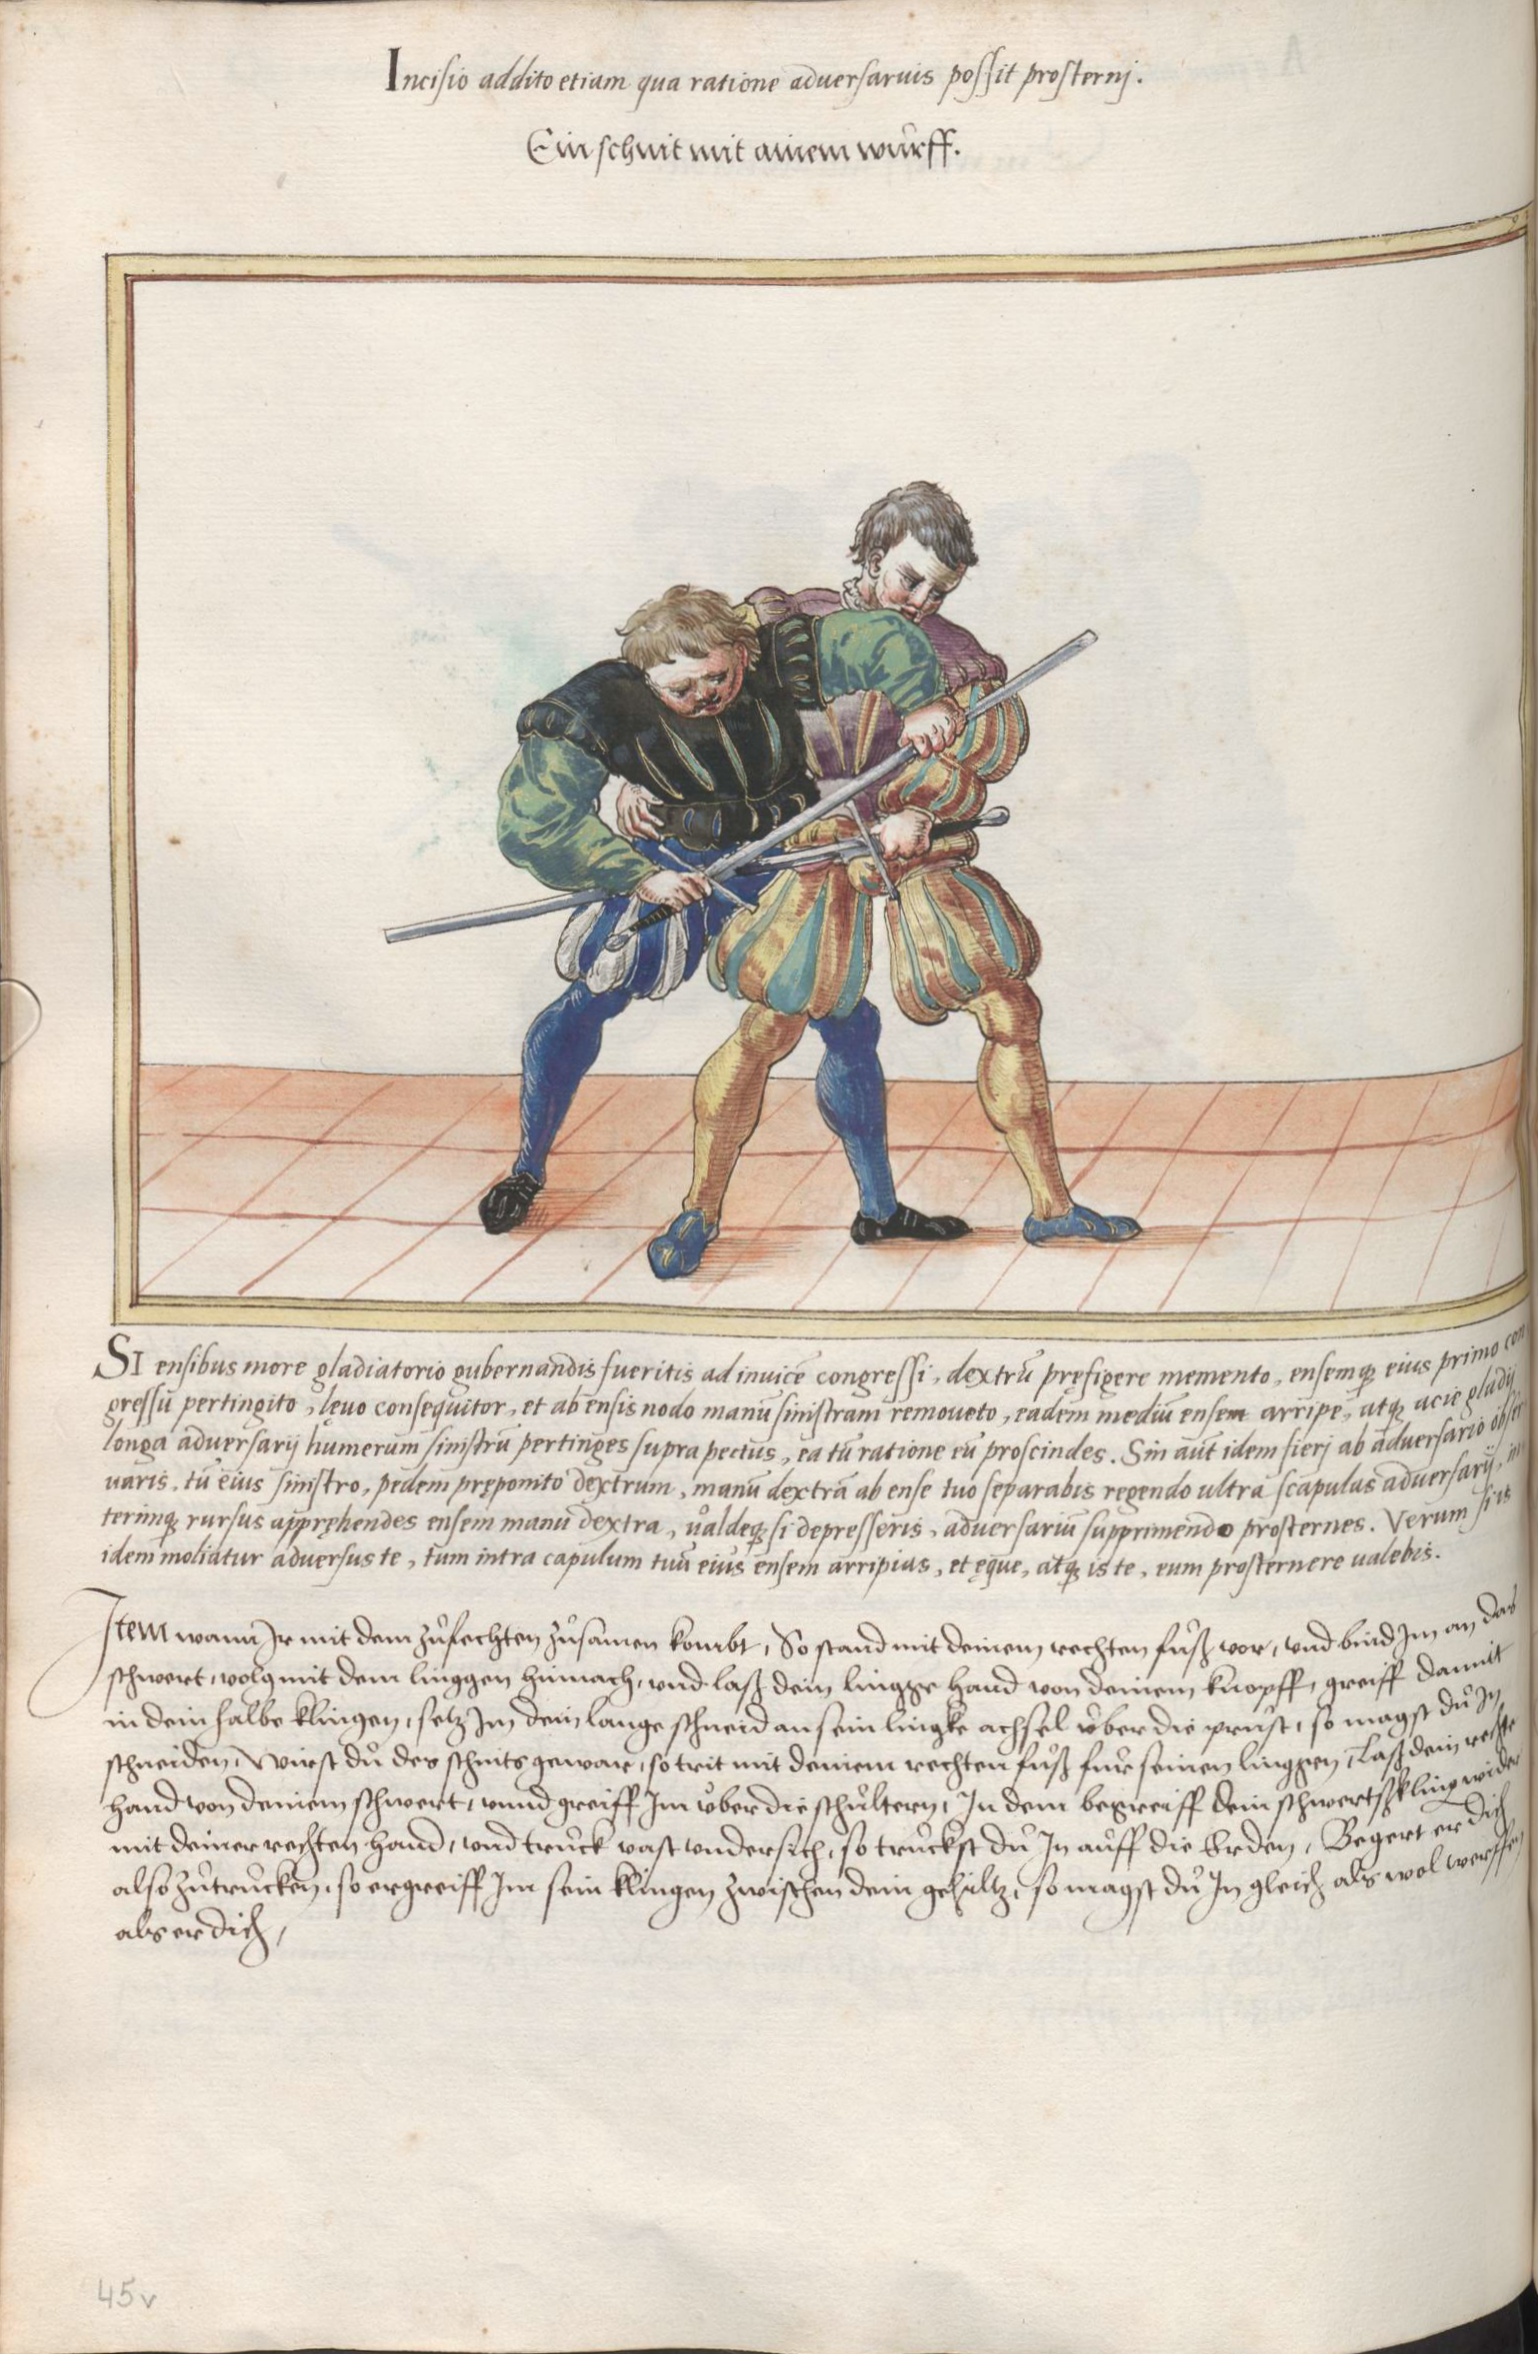 Incisio addito etiam qua ratione aduersaruis possit prosternj.
Ein schnit mit ainem wu̇rff.
SI ensibus more gladiatorio gubernandis fueritis ad inuicē congressi, dextrū pręfigere memento, ensemq; eius primo con
gressu pertingito, lęuo consequitor, et ab ensis nodo manū sinistram remoueto, eadem mediū ensem arripe, atq; acie gladij
longa aduersarij humerum sinistrū pertinges supra pectus, ea tū ratione eū proscindes. Sin aūt idem fierj ab aduersario obser
uaris, tū eius sinistro, pedem pręponito dextrum, manū dextrā ab ense tuo separabis regendo ultra scapulas aduersarij, in
terimq; rursus appręhendes ensem manu dextra, ualdeq; si depresseris, aduersariū supprimendo prosternes. Verum si is
idem moliatur aduersus te, tum intra capulum tuū eius ensem arripias, et ęque, atq; is te, eum prosternere ualebis.
Item wann Ir mit dem zu̇fechten zu̇samen kombt, So stand mit deinem rechten fu̇ß vor, vnd bind Im an das
schwert, volg mit dem linggen hinnach, vnd laß dein lingge hand von deinem knopff, greiff damit
in dein halbe klingen, setz Im dein lange schneid an sein lingke achsel v̇ber die prust, so magst du̇ In
schneiden, Wirst du̇ des schnits gewar, so trit mit deinem rechten fu̇ß fu̇r seinen linggen, laß dein rechte
hand von deinem schwert, vnnd greiff Im v̇ber die schu̇ltern, In dem begreiff dein schwertskling wider
mit deiner rechten hand, vnd tru̇ck vast vndersich, so tru̇ckst du̇ In au̇ff die Erden, Begert er dich
also zu̇tru̇cken, so ergreiff Im sein klingen zwischen dein gehiltz, so magst du̇ In gleich als wol werffen
als er dich,
45v